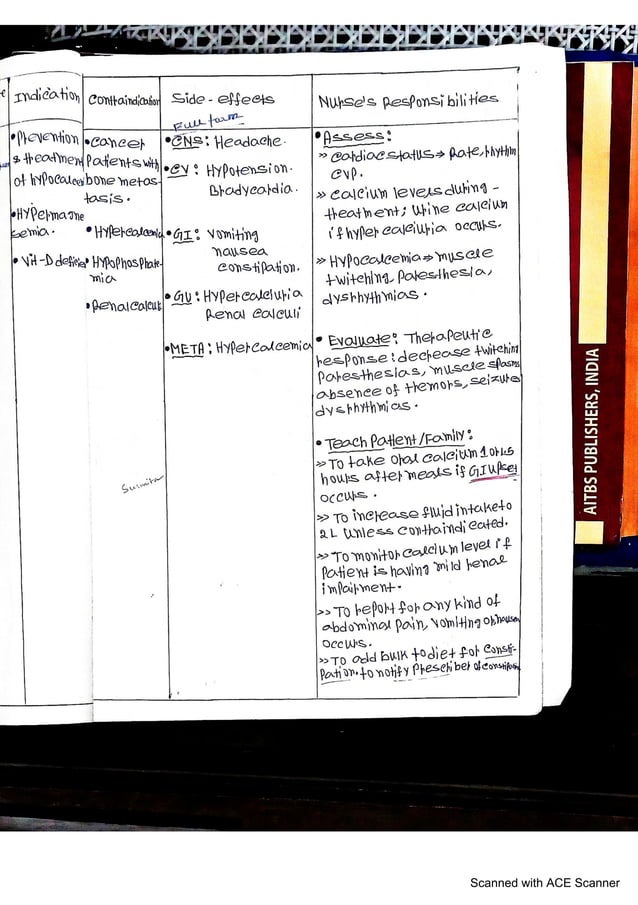 Indication
Prevention
& treatment
of hypocalcem
•Hypermagne
semia.
• Vit-D deficien
Contraindication
•Cancer
Patients with
bone metas-
tasis.
• Hypercalcemia
• Hypophosphate-
mia
•Renal calculi
Side-effects
Full form
•CNS: Headache.
•CV: Hypotension.
Bradycardia.
•GI: Vomiting
nausea
constipation.
•GU: Hypercalciuria
Renal calculi
•META: Hypercalcemia
Nurse's Responsibilities
•Assess:
» Cardiac status → Rate, rhythm
CVP.
» Calcium levels during -
treatment; Urine calcium
if hypercalciuria occurs.
» Hypocalcemia → muscle
twitching, Paresthesia,
dysrhythmias.
• Evaluate: Therapeutic
response: decrease twitchin
Paresthesias, muscle spasms
absence of tremors, seizure
dysrhythmias.
• Teach Patient/Family:
» To take oral calcium 1 or 1.5
hours after meals if GI upset
occurs.
>> To increase fluid intake to
2L unless contraindicated.
>> To monitor calcium level if
Patient is having mild renal
impairment.
>> To report for any kind of
abdominal pain, vomiting or nausea
occurs.
>> To add bulk to diet for consti-
pation, to notify Prescriber of constipation
AITBS PUBLISHERS, INDIA
Scanned with ACE Scanner